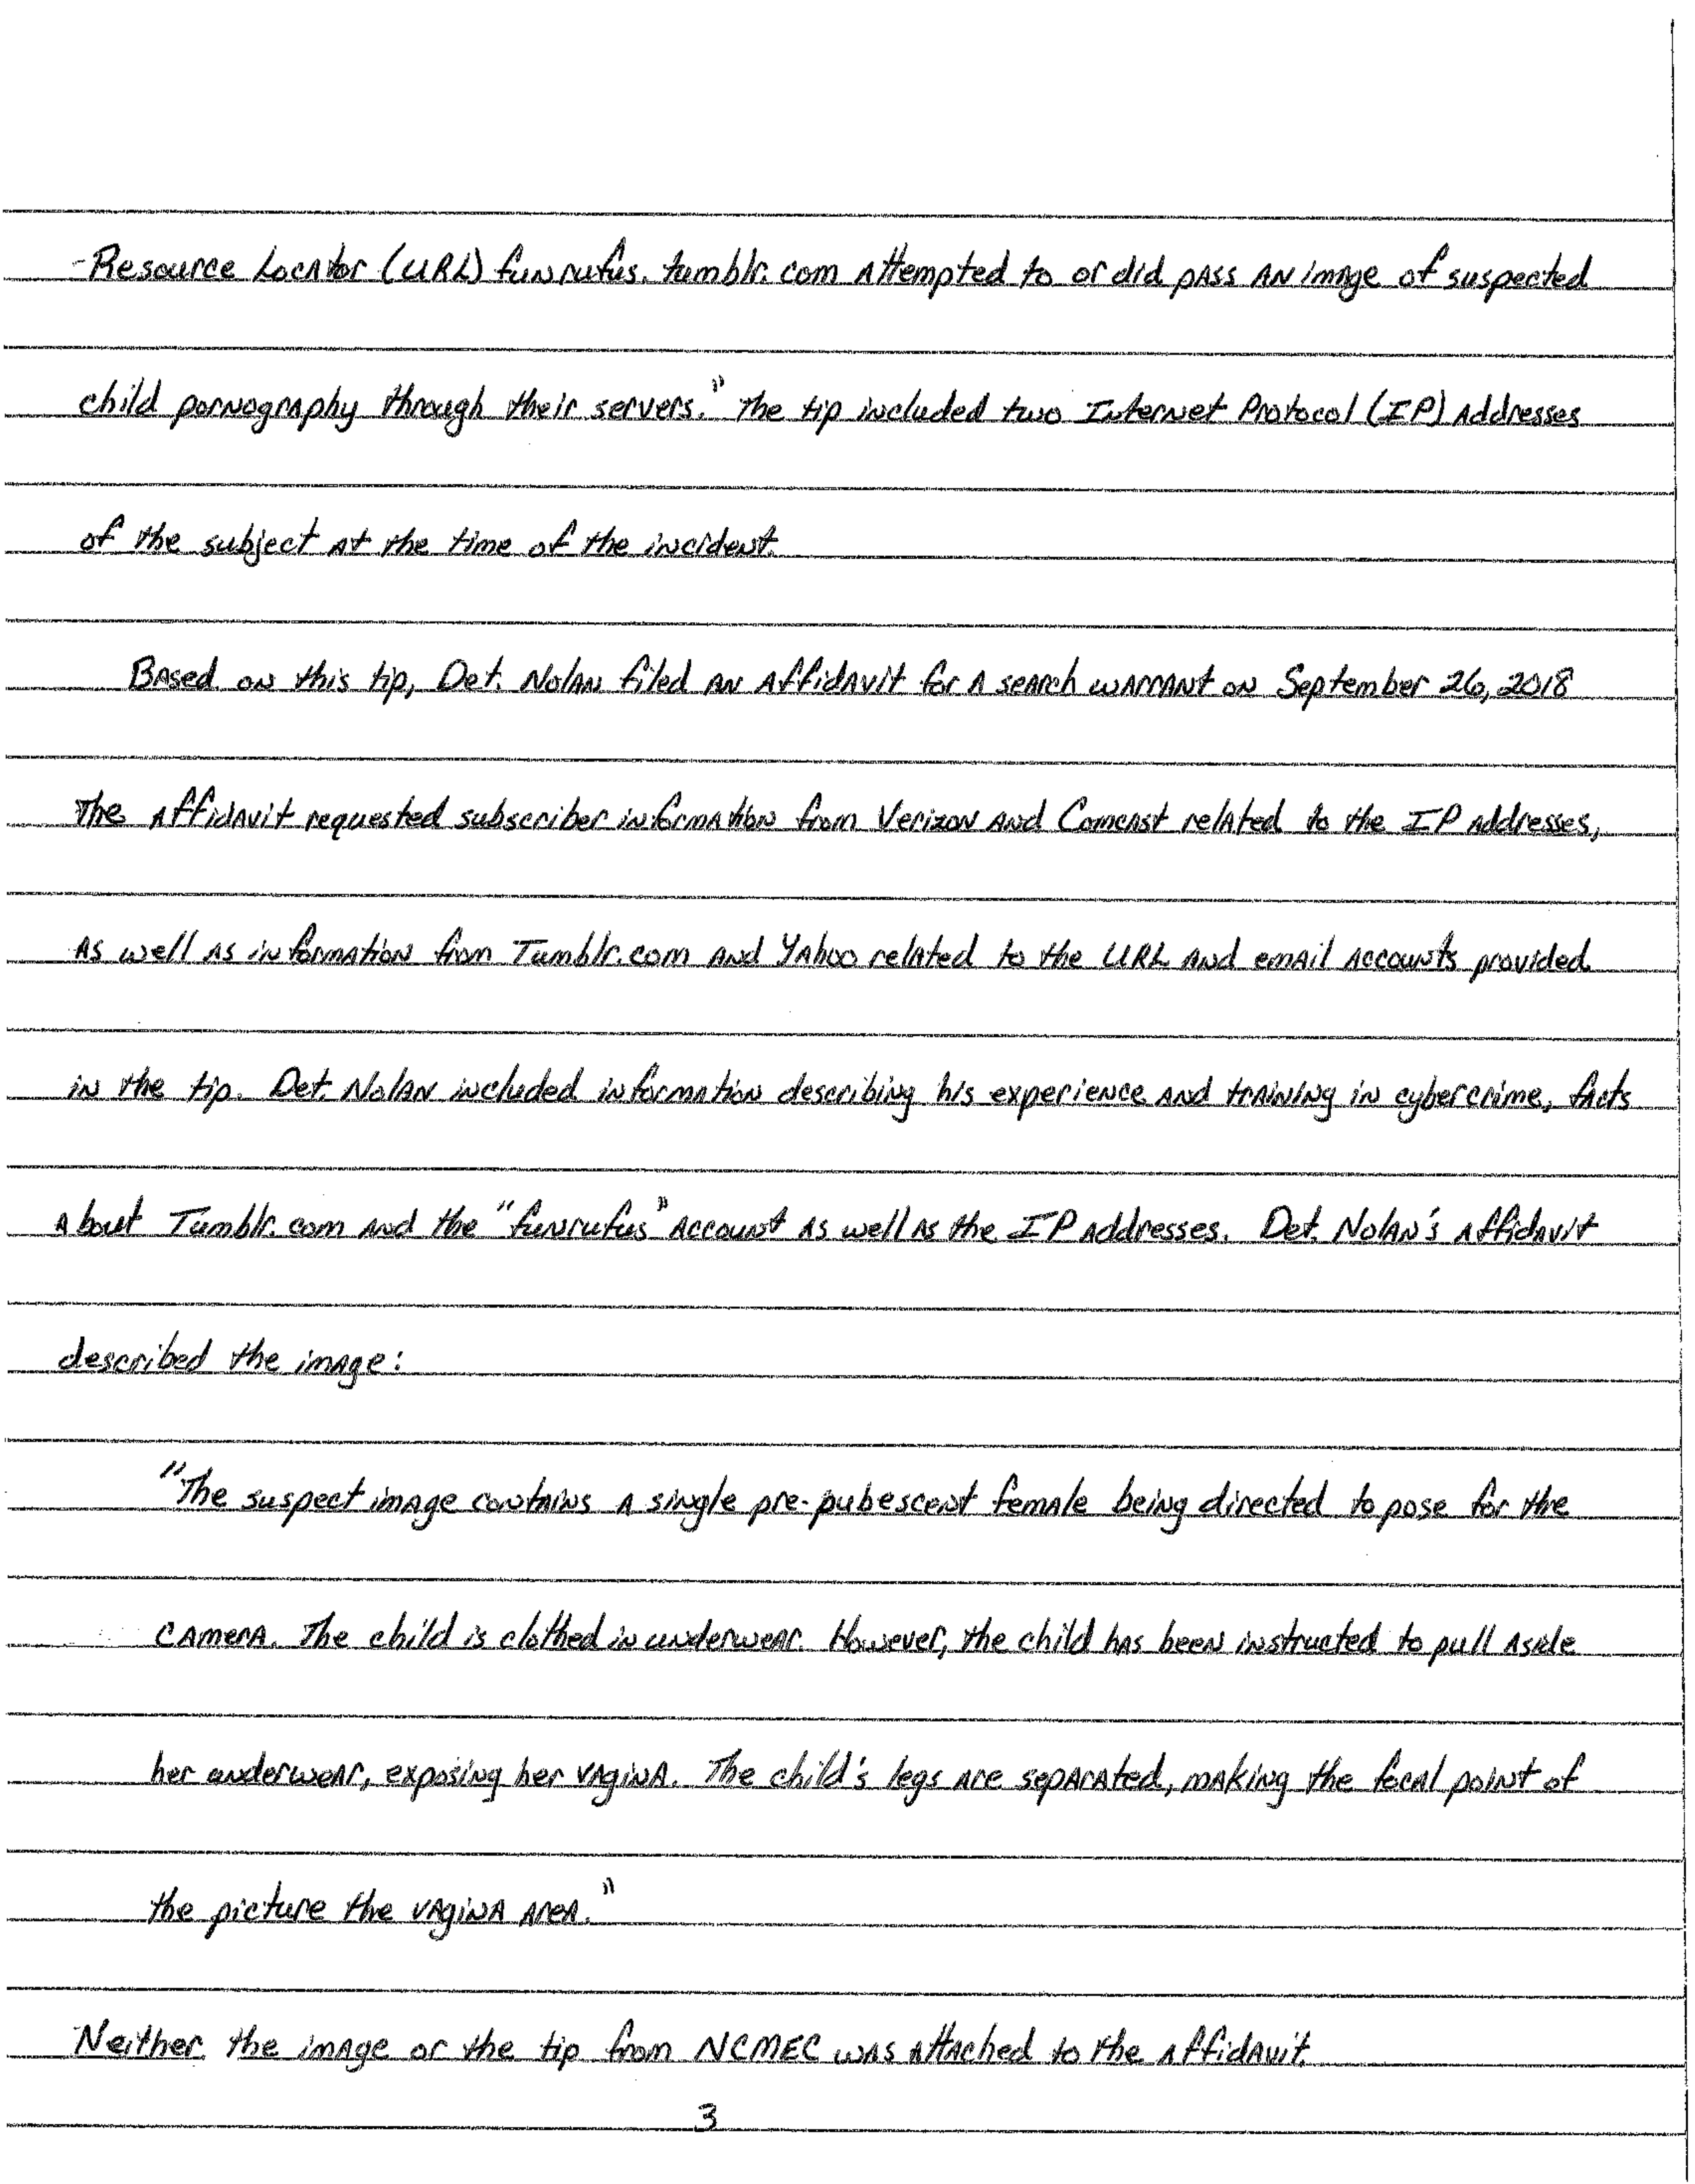 -Resource Locator (URL) funrufus.tumblr.com attempted to or did pass an image of suspected
child pornography through their servers." The tip included two Internet Protocol (IP) addresses
of the subject at the time of the incident.
Based on this tip, Det. Nolan filed an affidavit for a search warrant on September 26, 2018
The affidavit requested subscriber information from Verizon and Comcast related to the IP addresses,
as well as information from Tumblr.com and Yahoo related to the URL and email accounts provided
in the tip. Det. Nolan included information describing his experience and training in cybercrime, facts
about Tumblr.com and the "funrufus" account as well as the IP addresses. Det. Nolan's affidavit
described the image:
"The suspect image contains a single pre-pubescent female being directed to pose for the
camera. The child is clothed in underwear. However, the child has been instructed to pull aside
her underwear, exposing her vagina. The child's legs are separated, making the focal point of
the picture the vagina area."
Neither the image or the tip from NCMEC was attached to the affidavit.
3